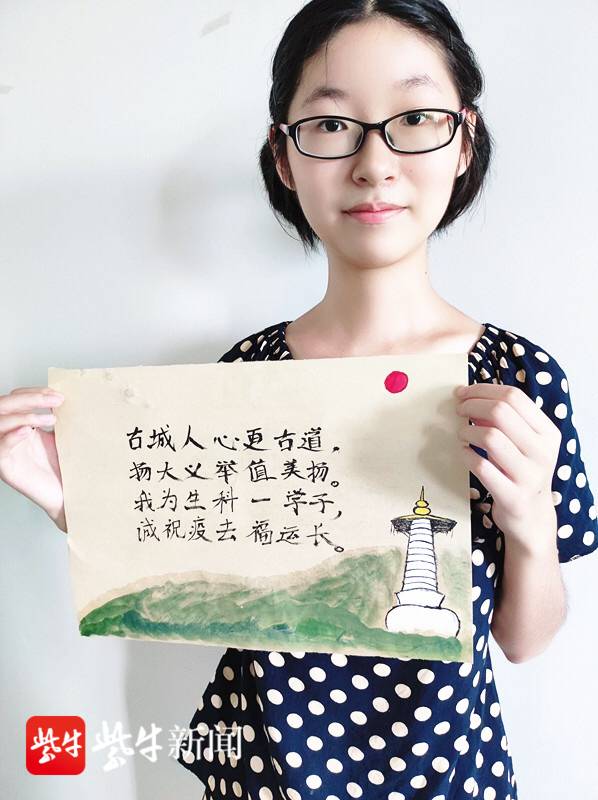 古城人心更古道，
扬大义举值美扬。
我为生科一学子，
诚祝疫去福运长。
紫牛 紫牛新闻